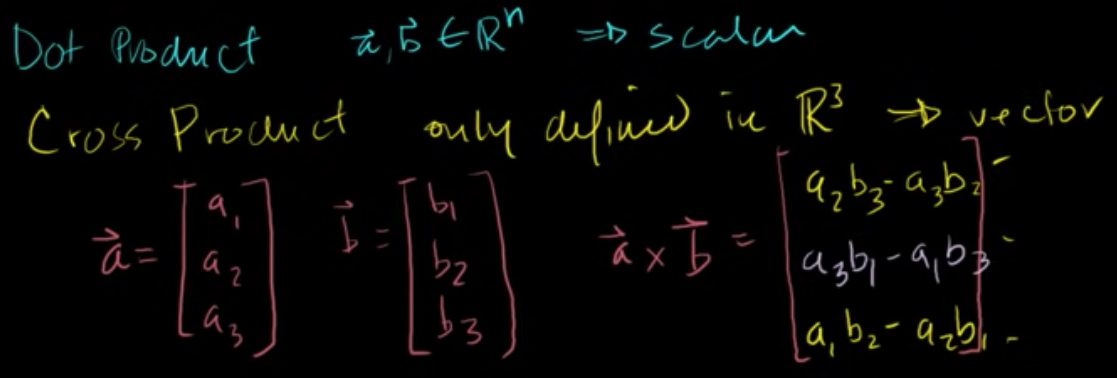 Dot Product a⃗, b⃗ ∈ ℝⁿ ⇒ scalar
Cross Product only defined in ℝ³ ⇒ vector
a⃗ = [a₁ a₂ a₃] b⃗ = [b₁ b₂ b₃] a⃗ × b⃗ = [a₂b₃ - a₃b₂ a₃b₁ - a₁b₃ a₁b₂ - a₂b₁]